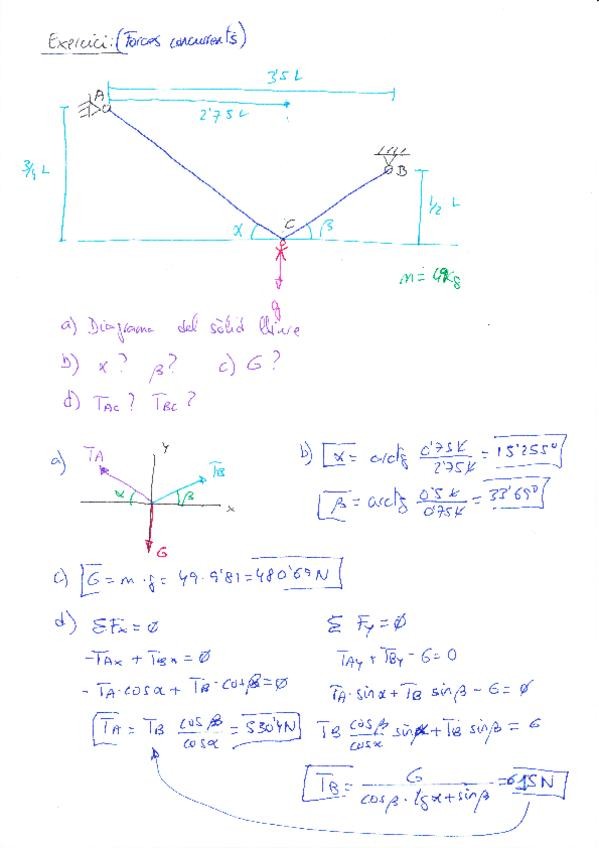 Exercici: (Forces concurrents)
3'5 L
A
2'75 L
3/4 L
B
1/2 L
C
α β
m = 49Kg
g
a) Diagrama del sòlid lliure
b) α? β? c) G?
d) TAC? TBC?
a)
y
TA
TB
α
β
x
G
b) α = arctg 0'75L/2'75L = 15'255º
β = arctg 0'5L/0'75L = 33'69º
c) G = m·g = 49·9'81 = 480'69 N
d) ΣFx = 0
-TAx + TBx = 0
-TA·cosα + TB·cosβ = 0
TA = TB cosβ/cosα = 530'4N
Σ Fy = 0
TAy + TBy - G = 0
TA·sinα + TB sinβ - G = 0
TB cosβ/cosα sinα + TB sinβ = G
TB = G/cosβ·tgα+sinβ = 615N